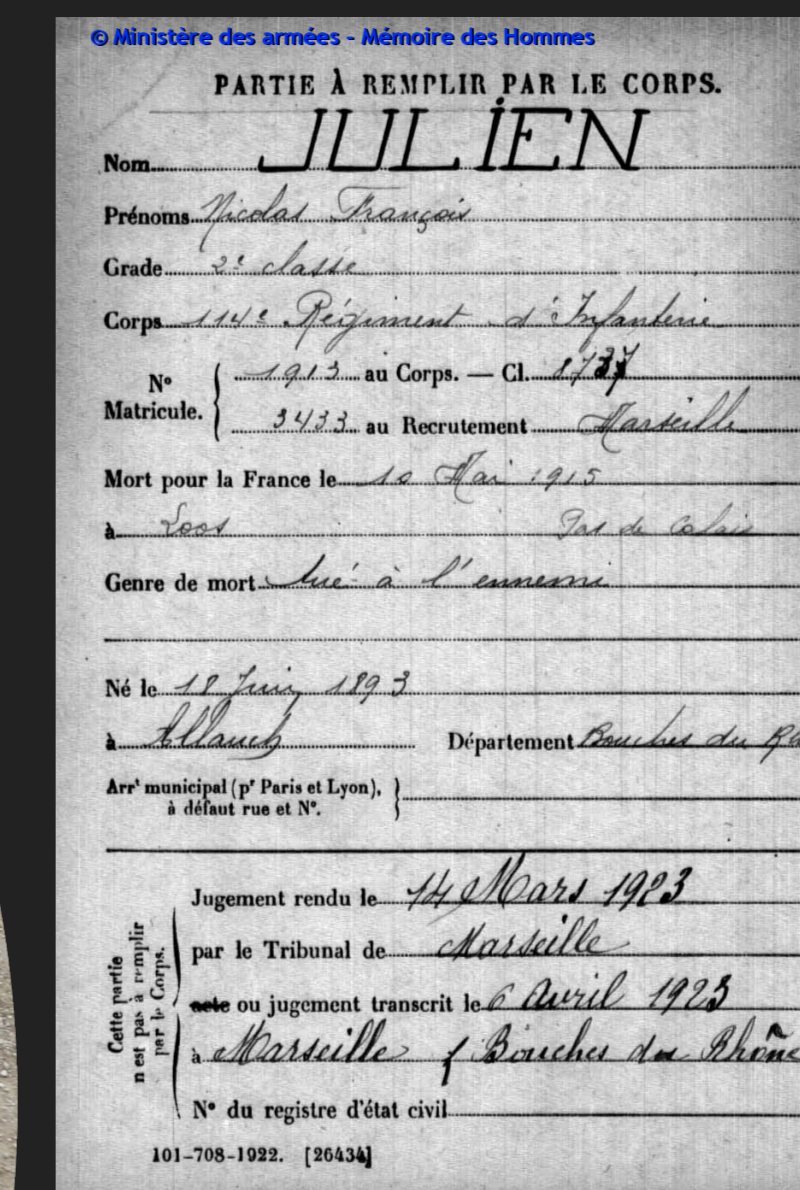 © Ministère des armées - Mémoire des Hommes
PARTIE À REMPLIR PAR LE CORPS.
Nom JULIEN
Prénoms Nicolas François
Grade 2e classe
Corps 114e Régiment d'Infanterie
No Matricule. { 1913 au Corps. — Cl.
3433 au Recrutement Marseille
Mort pour la France le 10 Mai 1915
à Loos Pas de Calais
Genre de mort tué à l'ennemi
Né le 18 Juin 1893
à Allauch Département Bouches du Rh
Arrt municipal (pr Paris et Lyon),
à défaut rue et No.
Cette partie n'est pas à remplir par le Corps.
Jugement rendu le 14 Mars 1923
par le Tribunal de Marseille
acte ou jugement transcrit le 6 Avril 1923
à Marseille Bouches du Rhône
No du registre d'état civil
101-708-1922. [26434]